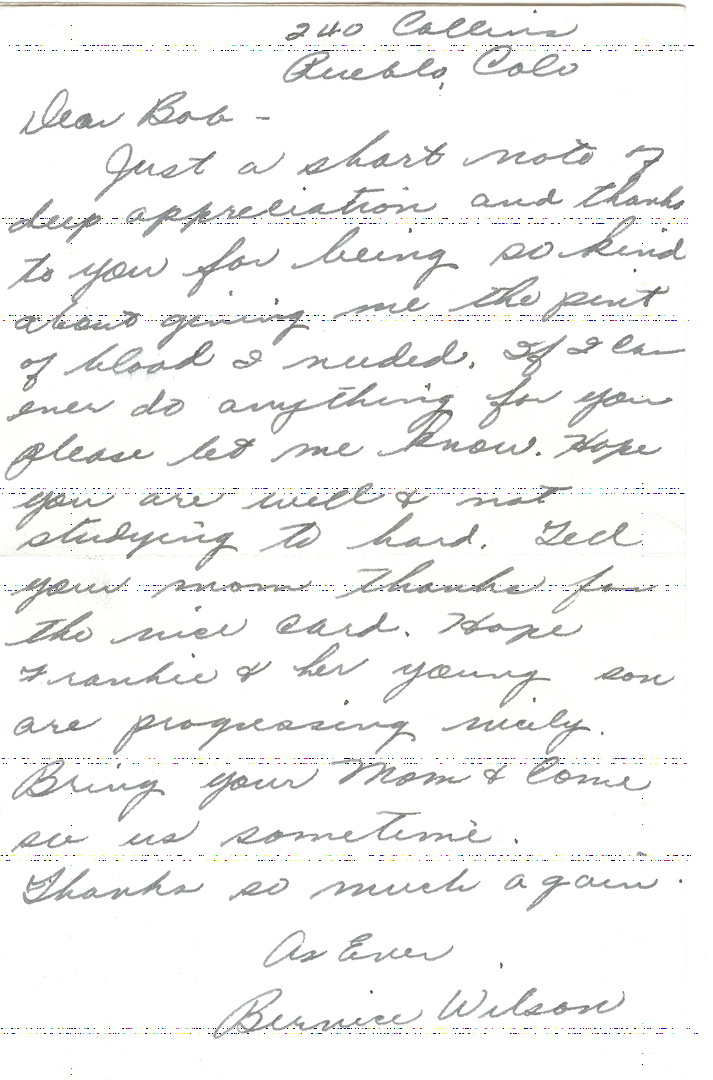 240 Collins
Pueblo, Colo
Dear Bob -
Just a short note of
deep appreciation and thanks
to you for being so kind
about giving me the pint
of blood I needed. If I can
ever do anything for you
please let me know. Hope
you are well & not
studying to hard. Tell
your mom thanks for
the nice card. Hope
Frankie & her young son
are progressing nicely.
Bring your Mom & Come
see us sometime.
Thanks so much again.
As Ever,
Bernice Wilson